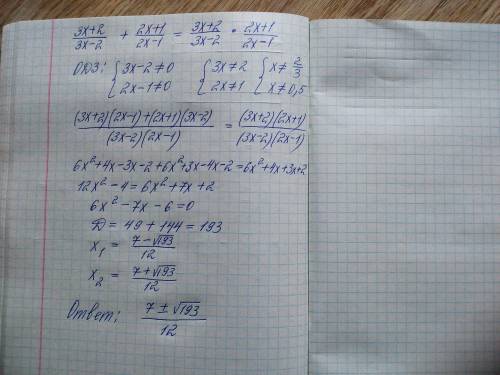 (3x+2)/(3x-2) + (2x+1)/(2x-1) = (3x+2)/(3x-2) · (2x+1)/(2x-1)
ОДЗ: { 3x-2≠0 { 3x≠2 { x≠2/3
2x-1≠0 2x≠1 x≠0,5
((3x+2)(2x-1)+(2x+1)(3x-2))/((3x-2)(2x-1)) = ((3x+2)(2x+1))/((3x-2)(2x-1))
6x²+4x-3x-2+6x²+3x-4x-2=6x²+4x+3x+2
12x²-4=6x²+7x+2
6x²-7x-6=0
D=49+144=193
x₁ = (7-√193)/12
x₂ = (7+√193)/12
Ответ: (7±√193)/12